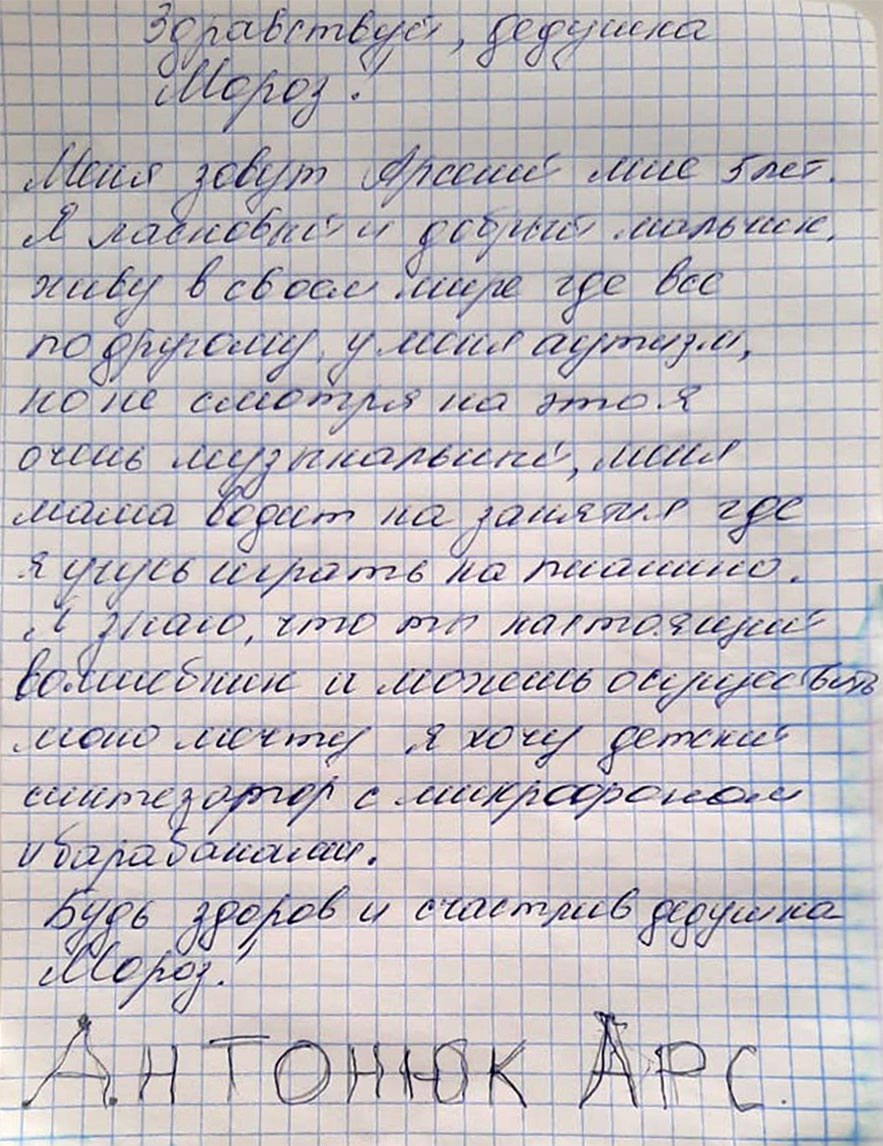 Здравствуй, дедушка
Мороз!
Меня зовут Арсений мне 5 лет.
Я ласковый и добрый мальчик,
живу в своем мире где все
по другому, у меня аутизм,
но не смотря на это я
очень музыкальный, меня
мама водит на занятия где
я учусь играть на пианино.
Я знаю, что ты настоящий
волшебник и можешь осуществить
мою мечту я хочу детский
синтезатор с микрофоном
и барабанами.
Будь здоров и счастлив дедушка
Мороз!
АНТОНЮК АРС.